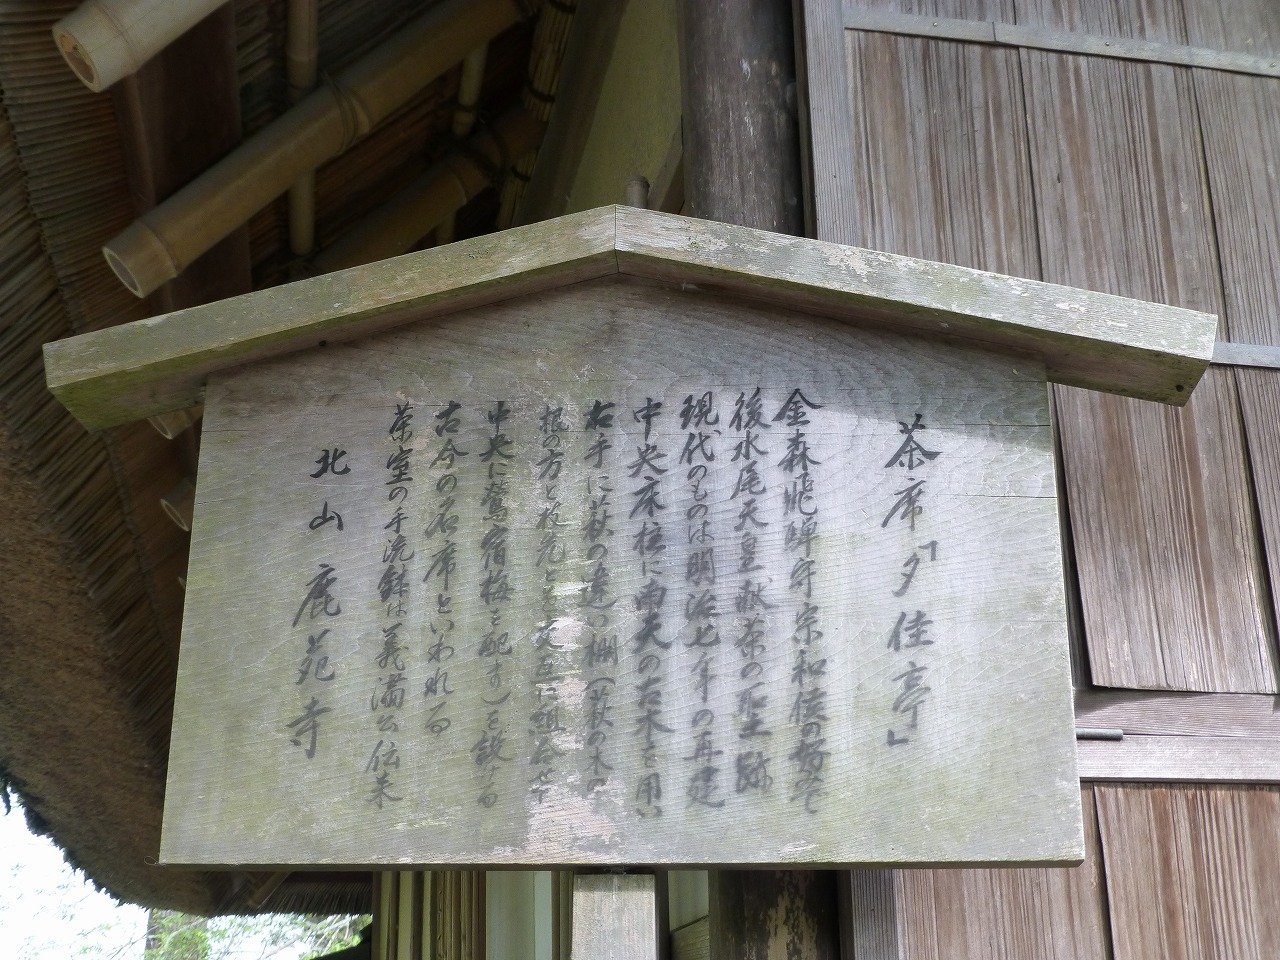 茶席「夕佳亭」
金森飛騨守宗和侯の好で
後水尾天皇献茶の聖跡
現代のものは明治七年の再建
中央床柱に南天の古木を用い
右手に萩の違い棚（萩の木の
根の方と枝先とを交互に組合せて
中央に鶯宿梅を配す）を設ける
古今の名席といわれる
茶室の手洗鉢は義満公伝来
北山 鹿苑寺